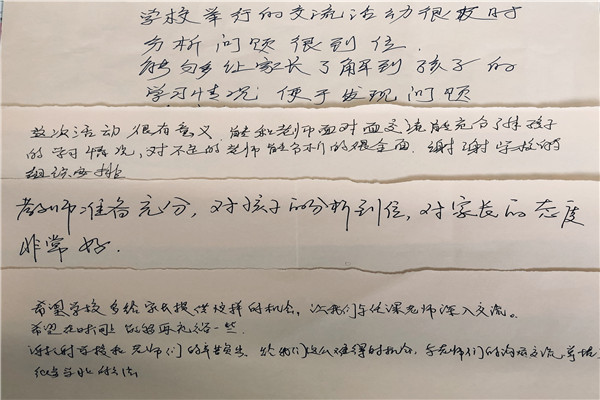 学校举行的交流活动很及时
分析问题很到位.
能够多让家长了解到孩子的
学习情况 便于发现问题
这次活动很有意义，能和老师面对面交流能充分了解孩子
的学习情况，对不足的老师能分析的很全面.谢谢学校的
组织安排
教师准备充分，对孩子的分析到位，对家长的态度
非常好.
希望学校多给家长提供这样的机会，让我们与任课老师深入交流。
希望在时间上能够再充裕一些.
老师们的辛苦付出 给我们这次难得的机会，与老师们的沟通交流